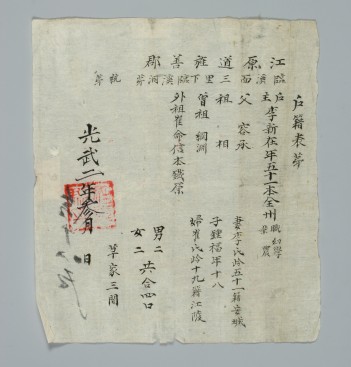 戶籍表
江原道旌善郡
戶主李新在年五十一本全州 職幼學 業農
父 容承
祖 相
曾祖
外祖崔命信本
妻李氏齡五十一籍安城
子鍾福年十八
婦崔氏齡十九籍江陵
男二
女二 共合四口
草家三間
光武二年參月 日